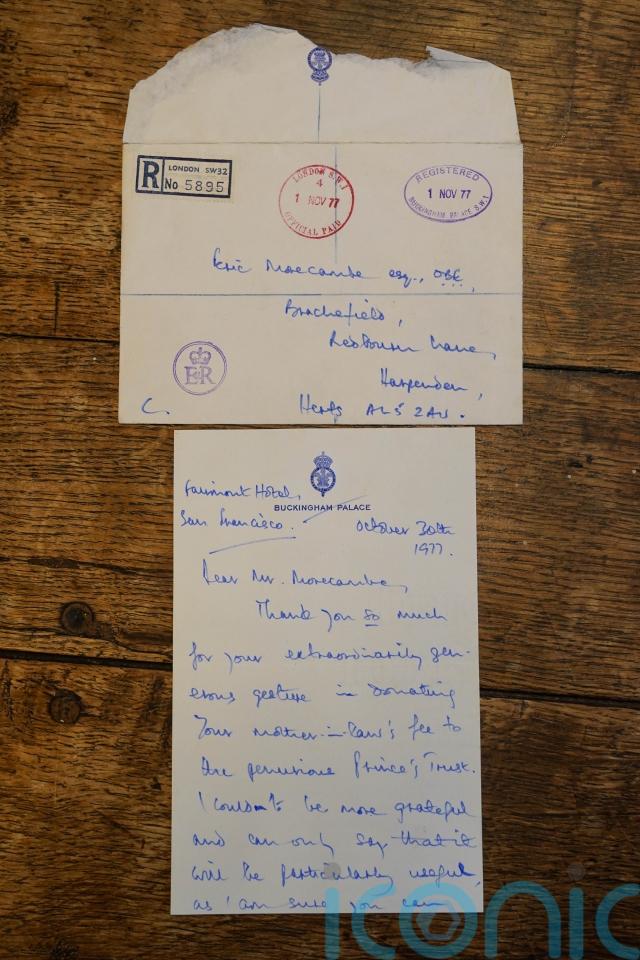 R
LONDON SW32
No 5895
LONDON S.W.1
4
1 NOV 77
OFFICIAL PAID
REGISTERED
1 NOV 77
BUCKINGHAM PALACE S.W.1
Eric Morecambe esq., OBE,
Brachefield,
Redbourn Lane,
Harpenden,
Herts AL5 2AW.
E R
C.
Fairmont Hotel,
San Francisco.
BUCKINGHAM PALACE
October 30th
1977.
Dear Mr. Morecambe,
Thank you so much
for your extraordinarily gen-
erous gesture in donating
your mother-in-law's fee to
the penurious Prince's Trust.
I couldn't be more grateful
and can only say that it
will be particularly useful,
as I am sure you can
iconic